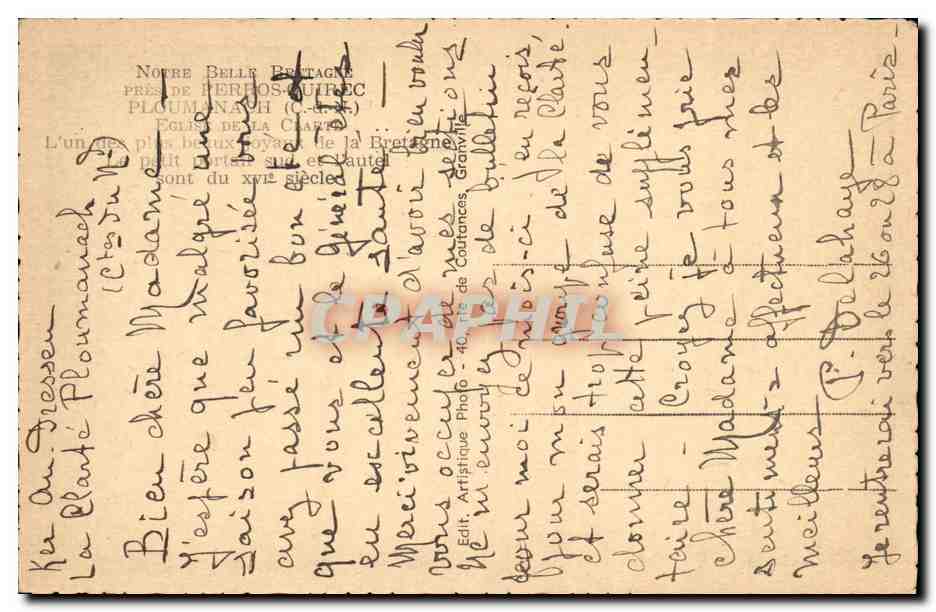 NOTRE BELLE BRETAGNE
PRÈS DE PERROS-GUIREC
PLOUMANACH (C.-d.-N.)
EGLISE DE LA CLARTÉ
L'un des plus beaux joyaux de la Bretagne
Le petit portail sud et l'autel
sont du XVIe siècle
Edit. Artistique Photo - 40, r. de Coutances, Granville
CPAPHIL
Ker An Tressen
La Clarté Ploumanach
(Ctes du Nd)
Bien chère Madame —
J'espère que malgré une
saison peu favorisée vous
avez passé un bon été et
que vous et le Général êtes
en excellente santé —
Merci vivement d'avoir bien voulu
vous occuper de mes sections
Ne m'envoyez pas de bulletin
pour moi ce mois-ci j'en reçois,
pour mon groupe de la Clarté.
et serais trop confuse de vous
donner cette peine supplémen-
taire — Croyez je vous prie
chère Madame à tous mes
sentiments affectueux et les
meilleurs
P. Delahaye —
Je rentrerai vers le 26 ou 28 à Paris —